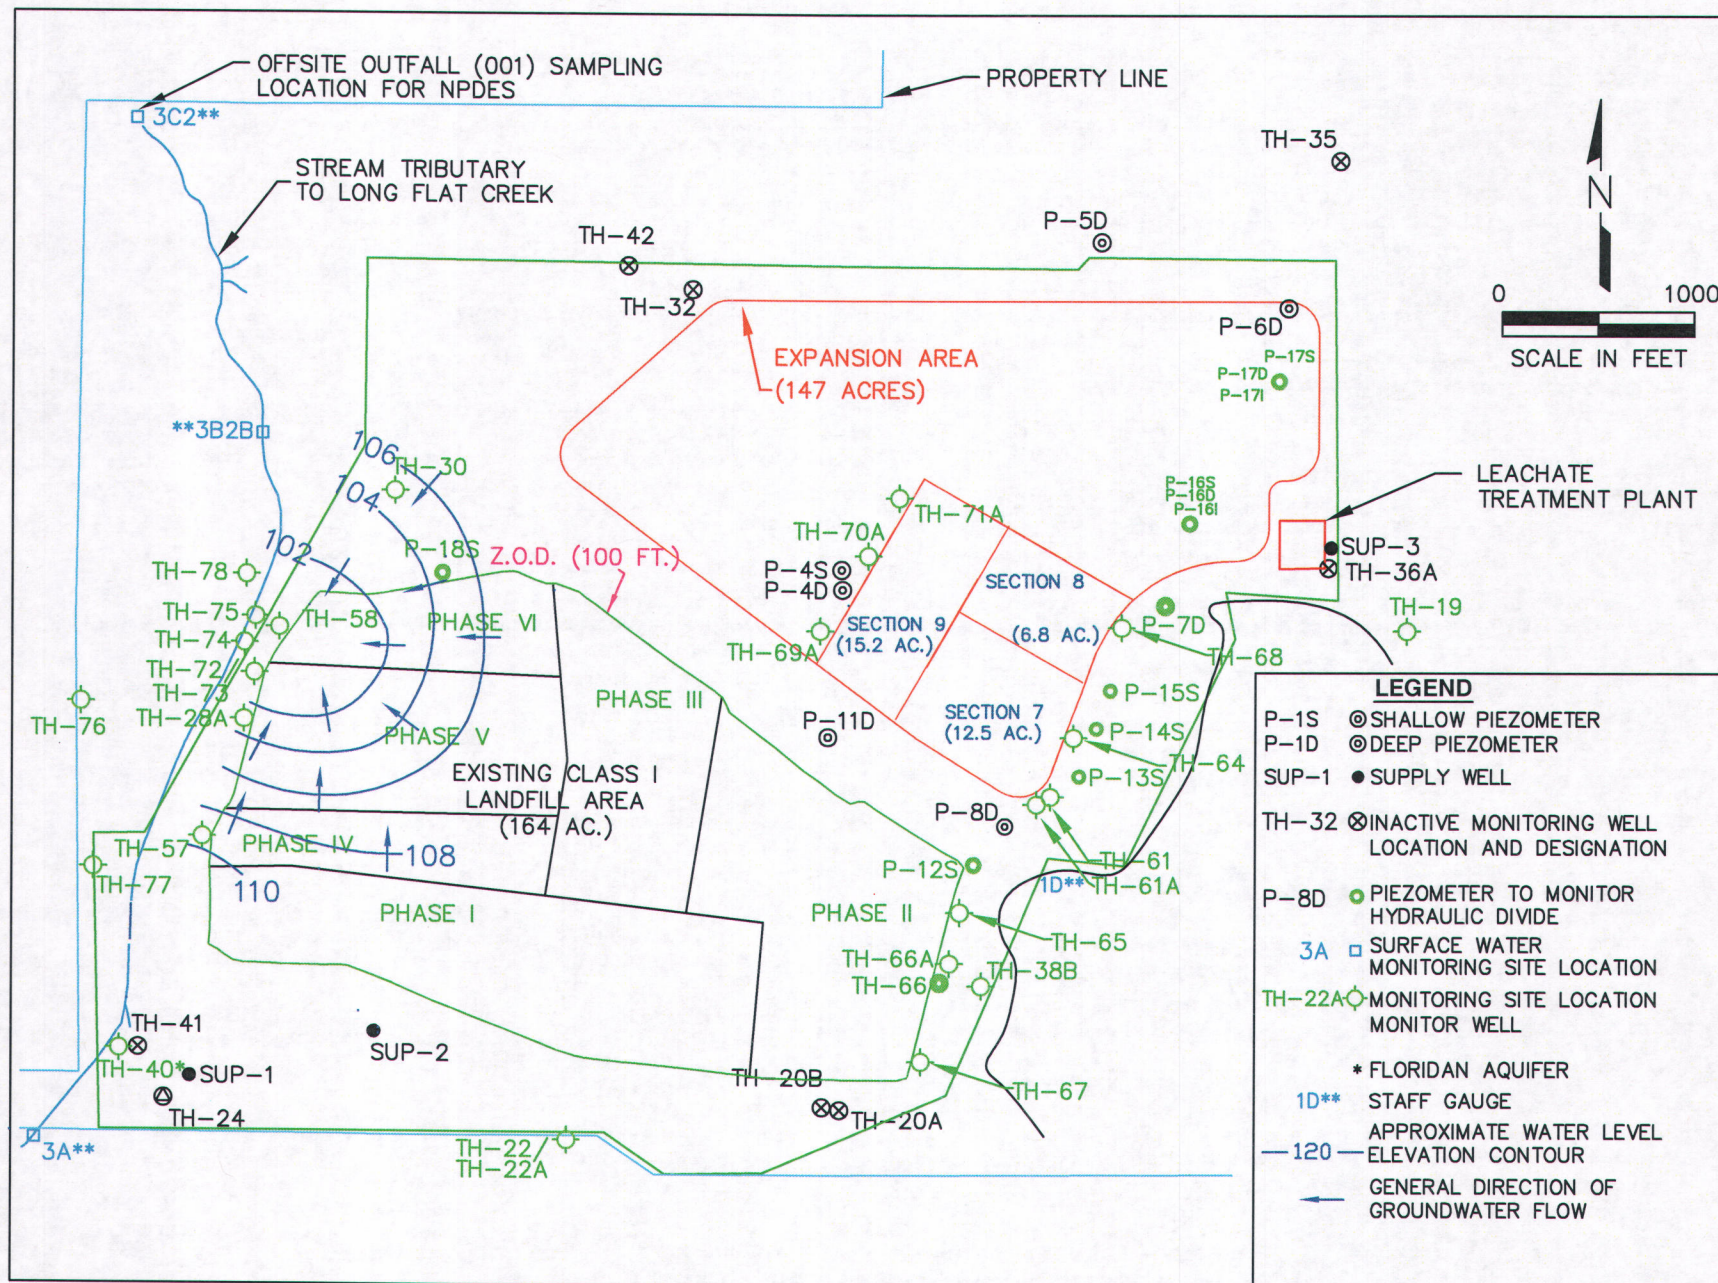 OFFSITE OUTFALL (001) SAMPLING
LOCATION FOR NPDES
PROPERTY LINE
3C2**
STREAM TRIBUTARY
TO LONG FLAT CREEK
TH-35
N
P-5D
TH-42
TH-32
0 1000
SCALE IN FEET
P-6D
EXPANSION AREA
(147 ACRES)
P-17S
P-17D
P-17I
**3B2B
106
TH-30
104
LEACHATE
TREATMENT PLANT
P-16S
P-16D
P-16I
TH-71A
TH-70A
102
P-18S
Z.O.D. (100 FT.)
SUP-3
TH-36A
P-4S
P-4D
SECTION 8
(6.8 AC.)
TH-78
TH-75
TH-58
TH-74
PHASE VI
SECTION 9
(15.2 AC.)
TH-69A
P-7D
TH-19
TH-68
TH-72
TH-73
TH-28A
TH-76
PHASE III
P-15S
SECTION 7
(12.5 AC.)
P-14S
P-11D
PHASE V
TH-64
P-13S
EXISTING CLASS I
LANDFILL AREA
(164 AC.)
P-8D
TH-57
PHASE IV
108
TH-61
TH-61A
P-12S
1D**
TH-77
110
PHASE I
PHASE II
TH-65
TH-66A
TH-38B
TH-66
TH-41
SUP-2
TH-40*
SUP-1
TH-24
TH-20B
TH-20A
TH-67
3A**
TH-22/
TH-22A
LEGEND
P-1S SHALLOW PIEZOMETER
P-1D DEEP PIEZOMETER
SUP-1 SUPPLY WELL
TH-32 INACTIVE MONITORING WELL
LOCATION AND DESIGNATION
P-8D PIEZOMETER TO MONITOR
HYDRAULIC DIVIDE
3A SURFACE WATER
MONITORING SITE LOCATION
TH-22A MONITORING SITE LOCATION
MONITOR WELL
* FLORIDAN AQUIFER
1D** STAFF GAUGE
120 APPROXIMATE WATER LEVEL
ELEVATION CONTOUR
GENERAL DIRECTION OF
GROUNDWATER FLOW